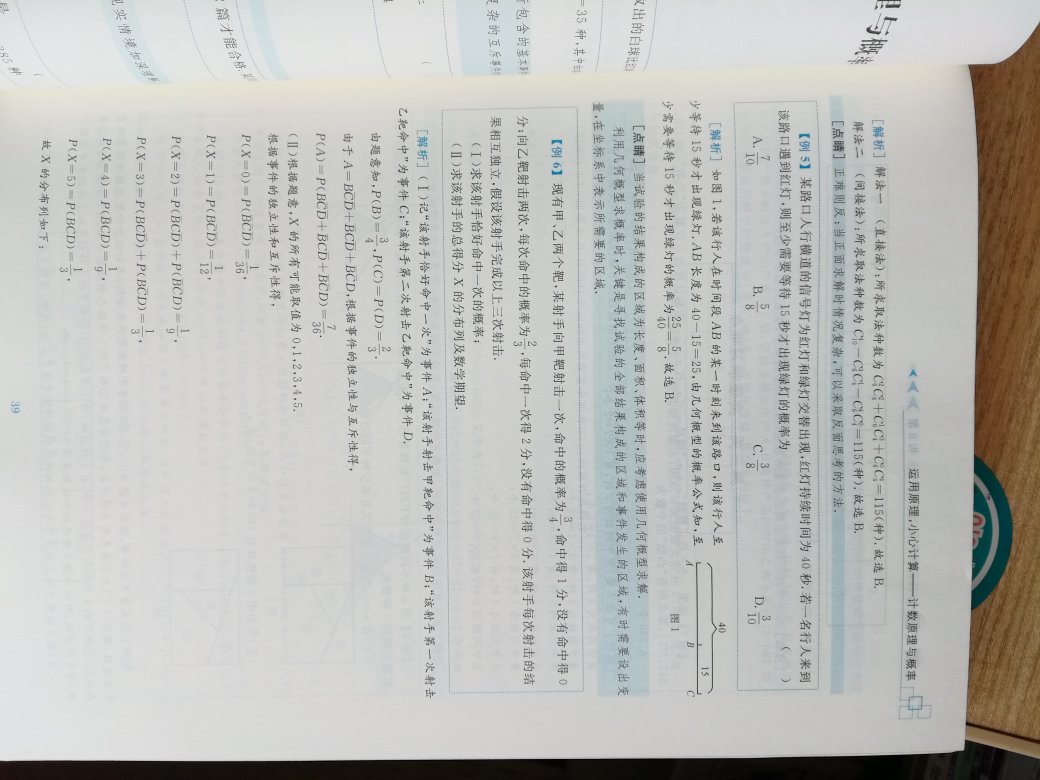 第6讲 运用原理,小心计算——计数原理与概率
[解析] 解法一 (直接法):所求取法种数为
=115(种).故选 B.
解法二 (间接法):所求取法种数为
=115(种).故选 B.
[点睛] 正难则反:当正面求解时情况复杂,可以采取反面思考的方法.
【例 5】 某路口人行横道的信号灯为红灯和绿灯交替出现,红灯持续时间为 40 秒.若一名行人来到
该路口遇到红灯,则至少需要等待 15 秒才出现绿灯的概率为 ( )
A. 7/10 B. 5/8 C. 3/8 D. 3/10
[解析] 如图 1,若该行人在时间段 AB 的某一时刻来到该路口,则该行人至
少等待 15 秒才出现绿灯.AB 长度为 40-15=25,由几何概型的概率公式知,至
少需要等待 15 秒才出现绿灯的概率为 25/40=5/8.故选 B.
40
15
A B C
图 1
[点睛] 当试验的结果构成的区域为长度、面积、体积等时,应考虑使用几何概型求解.
利用几何概型求概率时,关键是寻找试验的全部结果构成的区域和事件发生的区域,有时需要设出变
量,在坐标系中表示所需要的区域.
【例 6】 现有甲、乙两个靶,某射手向甲靶射击一次,命中的概率为 3/4,命中得 1 分,没有命中得 0
分;向乙靶射击两次,每次命中的概率为 2/3,每命中一次得 2 分,没有命中得 0 分.该射手每次射击的结
果相互独立,假设该射手完成以上三次射击.
(Ⅰ)求该射手恰好命中一次的概率;
(Ⅱ)求该射手的总得分 X 的分布列及数学期望.
[解析] (Ⅰ)记“该射手恰好命中一次”为事件 A;“该射手射击甲靶命中”为事件 B;“该射手第一次射击
乙靶命中”为事件 C;“该射手第二次射击乙靶命中”为事件 D.
由题意知,P(B)=3/4,P(C)=P(D)=2/3,
由于 A=BCD+BCD+BCD,根据事件的独立性与互斥性得,
P(A)=P(BCD+BCD+BCD)=7/36.
(Ⅱ)根据题意,X 的所有可能取值为 0,1,2,3,4,5.
根据事件的独立性和互斥性得,
P(X=0)=P(BCD)=1/36,
P(X=1)=P(BCD)=1/12,
P(X=2)=P(BCD)+P(BCD)=1/9,
P(X=3)=P(BCD)+P(BCD)=1/3,
P(X=4)=P(BCD)=1/9,
P(X=5)=P(BCD)=1/3,
故 X 的分布列如下:
39